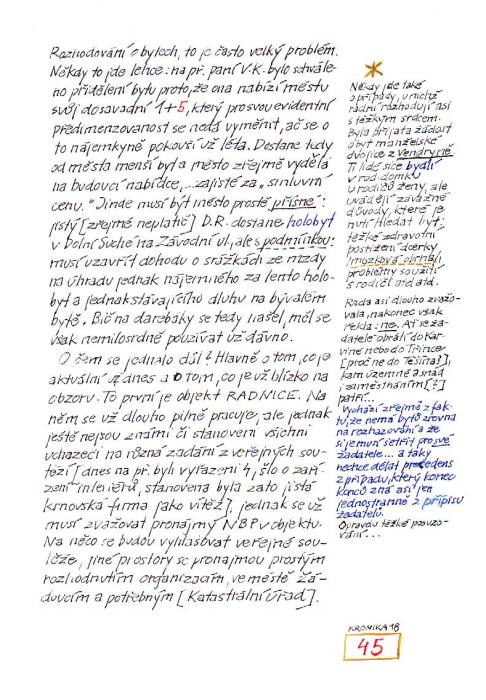 Rozhodování o bytech, to je často velký problém.
Někdy to jde lehce: na př. paní V.K. bylo schvále-
no přidělení bytu proto, že ona nabízí městu
svůj dosavadní 1+5, který pro svou evidentní
předimenzovanost se nedá vyměnit, ač se o
to nájemkyně pokouší už léta. Dostane tudy
od města menší byt a město zřejmě vydělá
na budoucí nabídce, ...zajisté za „smluvní
cenu." Jinde musí být město prostě přísné:
jistý [zřejmě neplatič] D.R. dostane holobyt
v Dolní Suché na Závodní ul., ale s podmínkou:
musí uzavřít dohodu o srážkách ze mzdy
na úhradu jednak nájemného za tento holo-
byt a jednak stávajícího dluhu na bývalém
bytě. Bič na darebáky se tedy našel, měl se
však nemilosrdně používat už dávno.
O čem se jednalo dál? Hlavně o tom, co je
aktuální už dnes a o tom, co je už blízko na
obzoru. To první je objekt RADNICE. Na
něm se už dlouho pilně pracuje, ale jednak
ještě nejsou známi či stanoveni všichni
uchazeči na různá zadání z veřejných sou-
těží [dnes na př. byli vyřazeni 4, šlo o zaří-
zení interiérů, stanovena byla zato jistá
krnovská firma jako vítěz], jednak se už
musí zvažovat pronájmy NBP v objektu.
Na něco se budou vyhlašovat veřejné sou-
těže, jiné prostory se pronajmou prostým
rozhodnutím organizacím, ve městě žá-
doucím a potřebným [Katastrální úřad].
Někdy jde také
o případy, u nichž
radní rozhodují asi
s těžkým srdcem.
Byla přijata žádost
o byt manželské
dvojice z Vendryně.
Ti lidé sice bydlí
v rod. domku
u rodičů ženy, ale
uvádějí závažné
důvody, které je
nutí hledat byt:
těžké zdravotní
postižení dcerky
[mozková obrna],
problémy soužití
s rodiči atd atd.
Rada asi dlouho zvažo-
vala, nakonec však
řekla: ne. Ať se ža-
datelé obrátí do Kar-
viné nebo do Třince
[proč ne do Těšína?],
kam územně a snad
i zaměstnáním [?]
patří...
Vychází zřejmě z fak-
tu, že nemá bytů zrovna
na rozhazování a že
si je musí šetřit pro své
žadatele... a taky
nechce dělat precedens
z případu, který konec
konců zná asi jen
jednostranně z přípisu
žadatelů.
Opravdu těžké posuzo-
vání...
KRONIKA 18
45